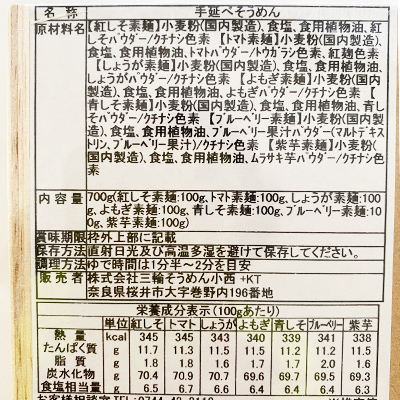 名 称 手延べそうめん
原材料名 【紅しそ素麺】小麦粉(国内製造)、食塩、食用植物油、紅
しそパウダー/クチナシ色素 【トマト素麺】小麦粉(国内製造)、
食塩、食用植物油、トマトパウダー/トウガラシ色素、紅麹色素
【しょうが素麺】小麦粉(国内製造)、食塩、食用植物油、
しょうがパウダー/クチナシ色素 【よもぎ素麺】小麦粉(国内
製造)、食塩、食用植物油、よもぎパウダー/クチナシ色素 【
青しそ素麺】小麦粉(国内製造)、食塩、食用植物油、青し
そパウダー/クチナシ色素 【ブルーベリー素麺】小麦粉(国内製
造)、食塩、食用植物油、ブルーベリー果汁パウダー(マルトデキス
トリン、ブルーベリー果汁)/クチナシ色素 【紫芋素麺】小麦粉
(国内製造)、食塩、食用植物油、ムラサキ芋パウダー/クチナシ色
素
内 容 量 700g(紅しそ素麺:100g、トマト素麺:100g、しょうが素麺:100
g、よもぎ素麺:100g、青しそ素麺:100g、ブルーベリー素麺:10
0g、紫芋素麺:100g)
賞味期限 枠外上部に記載
保存方法 直射日光及び高温多湿を避けて保存してください。
調理方法 ゆで時間は1分半~2分を目安
販 売 者 株式会社三輪そうめん小西 +KT
奈良県桜井市大字巻野内196番地
栄養成分表示(100gあたり)
単位 紅しそ トマト しょうが よもぎ 青しそ ブルーベリー 紫芋
熱 量 kcal 345 345 343 340 339 341 338
たんぱく質 g 11.7 11.3 11.5 11.5 11.2 11.2 11.5
脂 質 g 1.8 1.8 1.6 1.7 1.7 2.0 1.6
炭水化物 g 70.4 70.9 70.7 69.6 69.7 69.5 69.3
食塩相当量 g 6.5 6.7 6.6 6.4 6.5 6.6 6.4